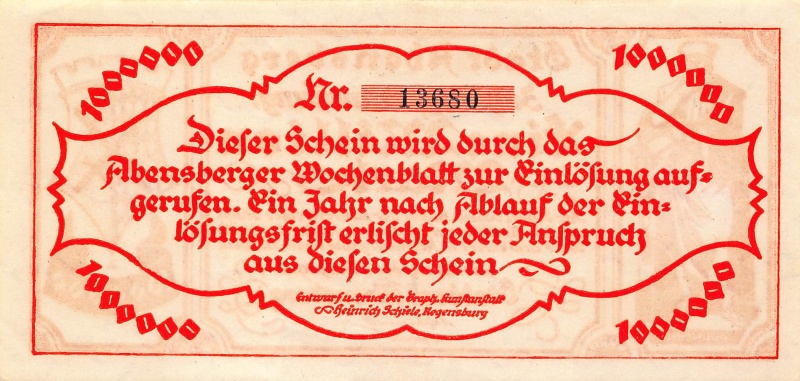 1000000
1000000
Nr. 13680
Dieser Schein wird durch das
Abensberger Wochenblatt zur Einlösung auf=
gerufen. Ein Jahr nach Ablauf der Ein=
lösungsfrist erlischt jeder Anspruch
aus diesen Schein
Entwurf u. Druck der Graph. Kunstanstalt
Heinrich Schiele, Regensburg
1000000
1000000